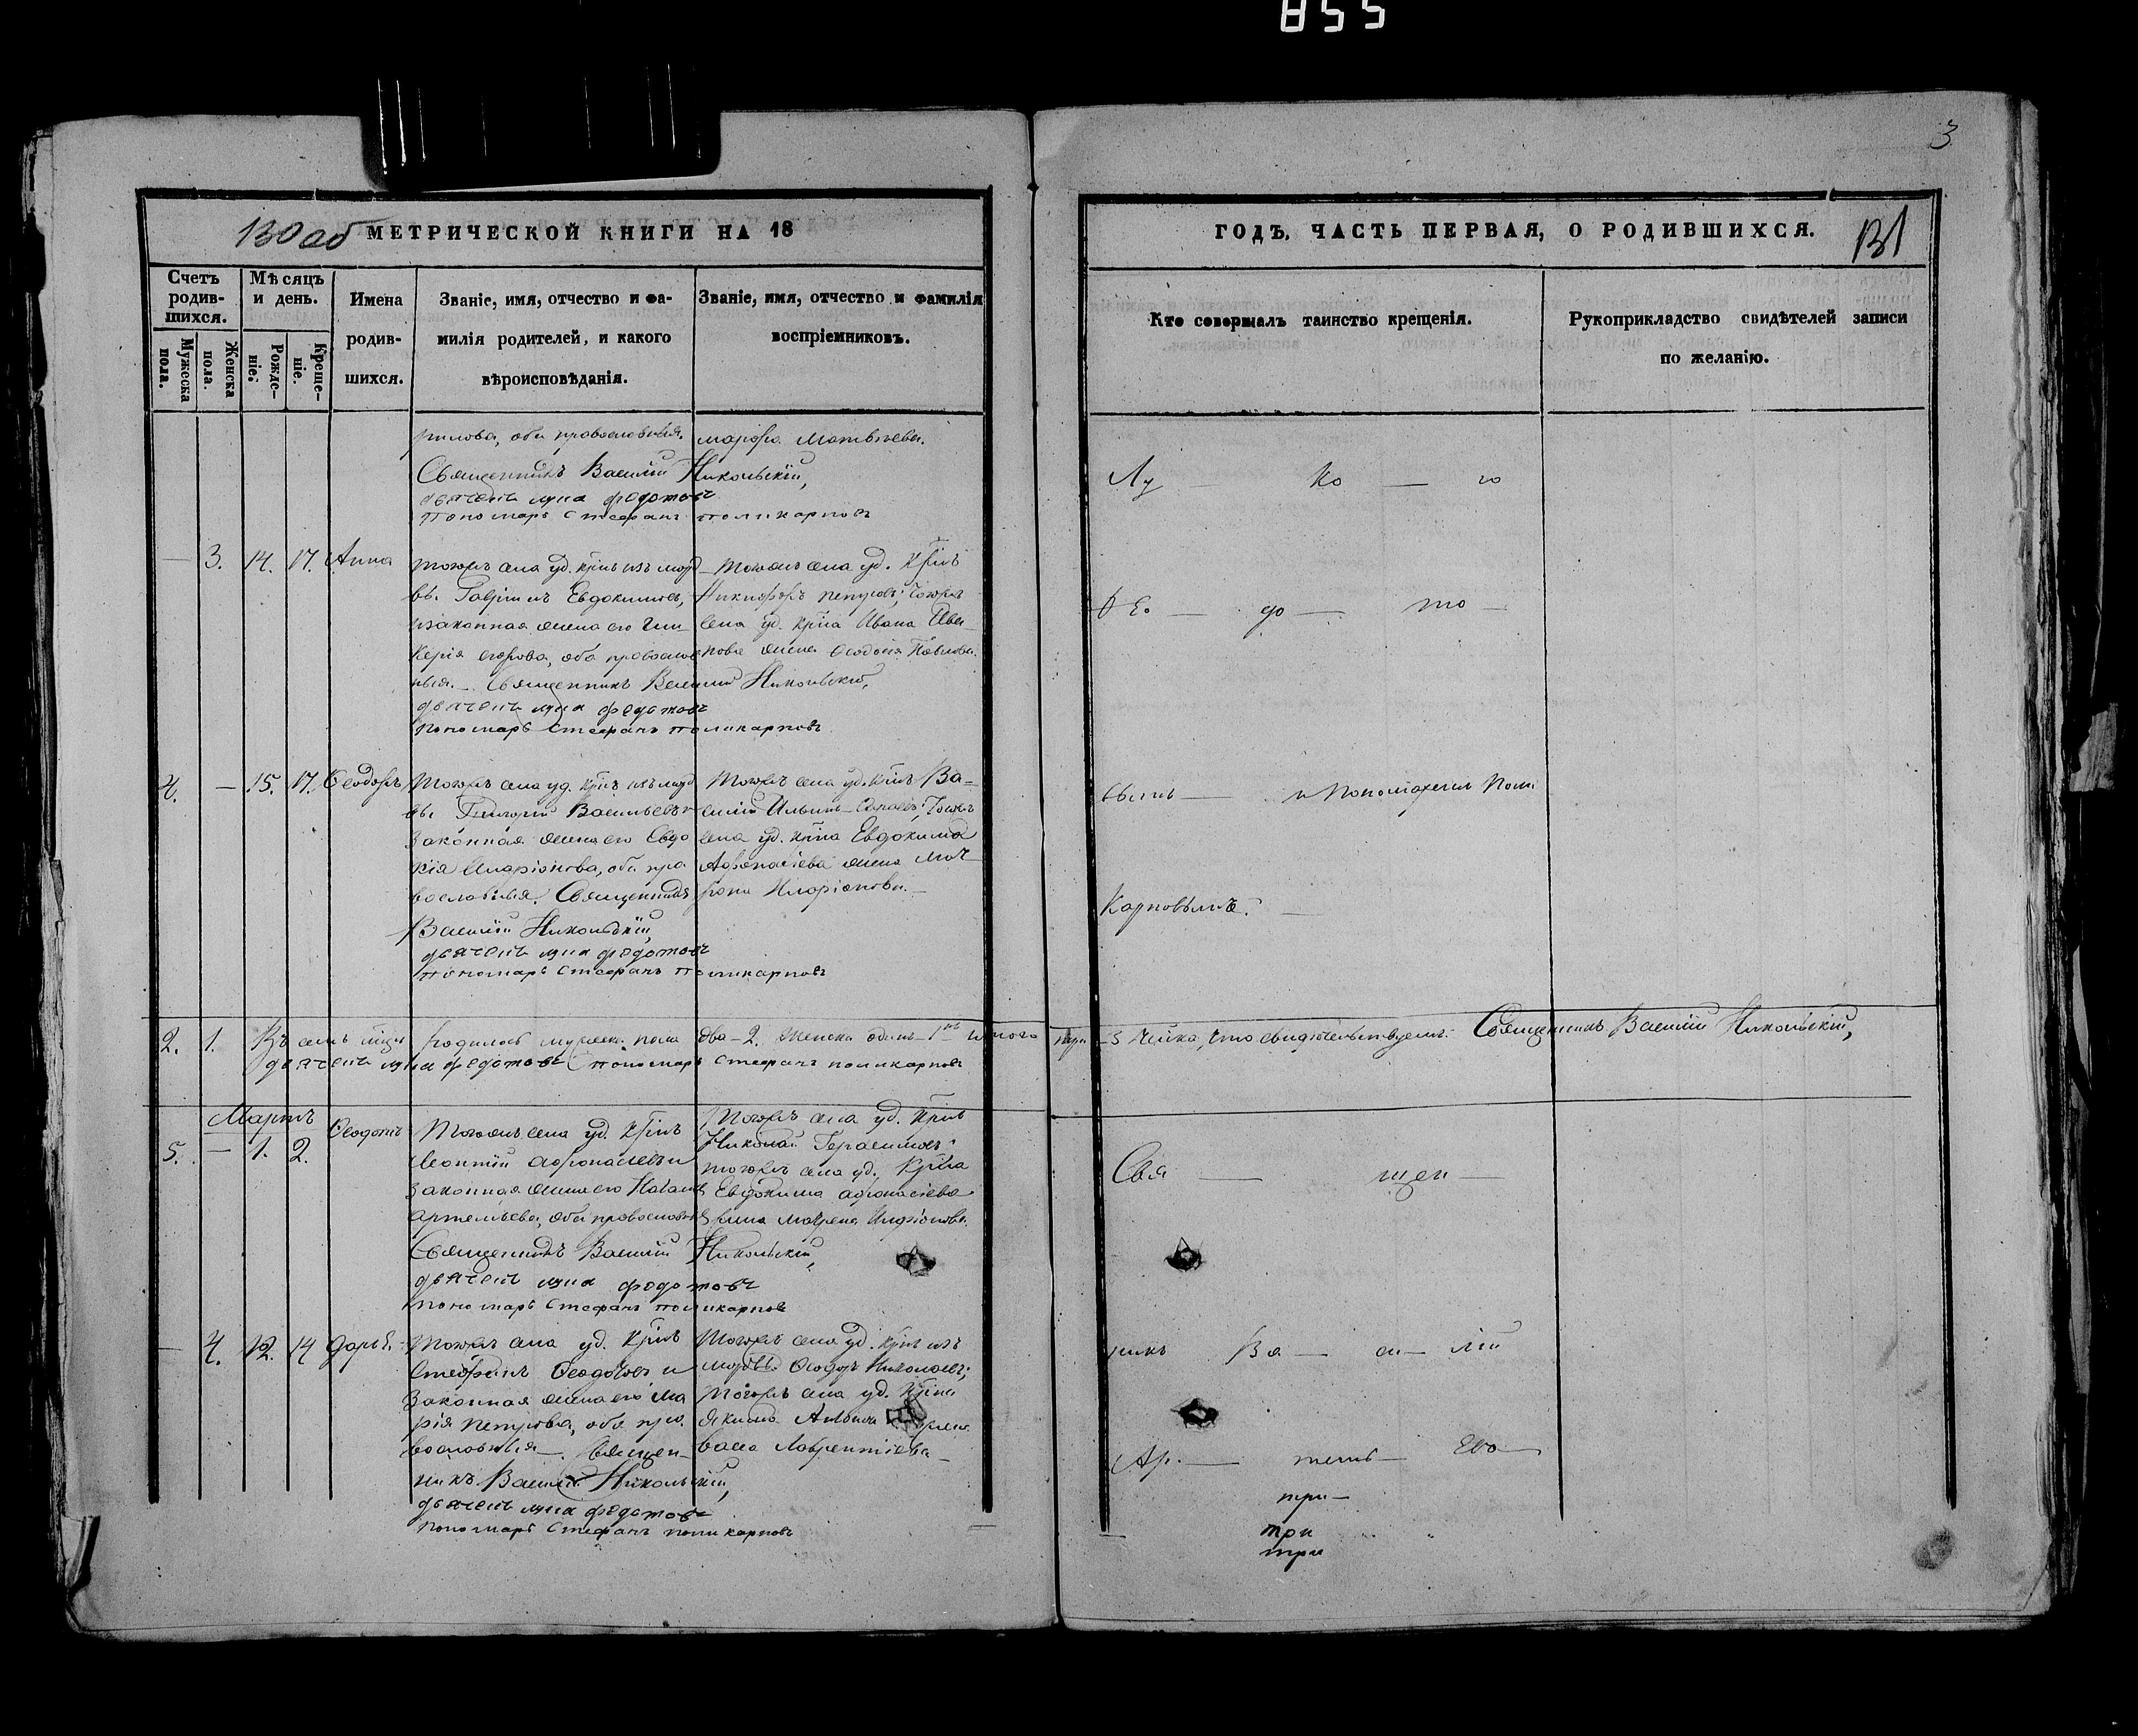 855
3
130 об МЕТРИЧЕСКОЙ КНИГИ НА 18
ГОДЪ. ЧАСТЬ ПЕРВАЯ, О РОДИВШИХСЯ. 131
Счетъ родив-шихся.
Мужеска пола.
Женска пола.
Мѣсяцъ и день.
Рожде-ніе.
Креще-ніе.
Имена родив-шихся.
Званіе, имя, отчество и фа-
милія родителей, и какого
вѣроисповѣданія.
Званіе, имя, отчество и фамилія
воспріемниковъ.
Кто совершалъ таинство крещенія.
Рукоприкладство свидѣтелей записи
по желанію.
рилова, оба православныя.
Марфа Матвѣева.
Священникъ Василій Никольскій,
дьячекъ Лука Федотовъ
пономарь Стефанъ Поликарповъ
Лу — ко — ю
— 3. 14. 17. Анна
тогожъ села уд. крѣ изъ морд
вы Гаврiилъ Евдокимовъ,
и законная жена его Гли-
керія Егорова, оба православ
ныя. — Священникъ Василій Никольскій,
дьячекъ Лука Федотовъ
пономарь Стефанъ Поликарповъ
тогожъ села уд. крѣ
Никифоръ Петровъ; тогожъ
села уд. крѣ Ивана Ива
нова жена Ѳеодосія Павлова.
Ѳе — до — то —
4. — 15. 17. Ѳеодоръ
Тогожъ села уд. крѣ изъ морд
вы Григорій Васильевъ и
законная жена его Евдо
кія Иларіонова, оба пра
вославныя. Священникъ
Василій Никольскій,
дьячекъ Лука Федотовъ
пономарь Стефанъ Поликарповъ
Тогожъ села уд. крѣ Ва-
силій Ильинъ
села уд. крѣ Евдокима
Афонасіева жена Мат
рона Иларіонова. —
вымъ — и Пономаремъ Поли
карповымъ.
2. 1. Въ семъ мцѣ родилось мужеска пола два — 2. женска одинъ — 1 итого
3 чейка, что свидѣтельствуемъ: Священникъ Василій Никольскій,
дьячекъ Лука Федотовъ пономарь Стефанъ Поликарповъ
Мартъ
5. — 1. 2. Ѳеодотъ
Тогожъ села уд. крѣ
Леонтій Афонасіевъ и
законная жена его Наталія
Артемьева, оба православныя
Священникъ Василій Никольскій,
дьячекъ Лука Федотовъ
пономарь Стефанъ Поликарповъ
Тогожъ села уд. крѣ
Николай Герасимовъ
тогожъ села уд. крѣ
Евдокима Афонасіева
жена Матрена Иларіонова.
Свя — щен —
— 4. 12. 14 Дарья
Тогожъ села уд. крѣ
Стефанъ Ѳеодотовъ и
законная жена его Ма
рія Петрова, оба пра
вославныя — Священ-
никъ Василій Никольскій,
дьячекъ Лука Федотовъ
пономарь Стефанъ Поликарповъ
Тогожъ села уд. крѣ изъ
мордвы Ѳеодоръ Николаевъ;
тогожъ села уд. крѣ
Якима
Лаврентіева —
никъ Ва — си — лій
Ар. — темь — ево
три —
три
три